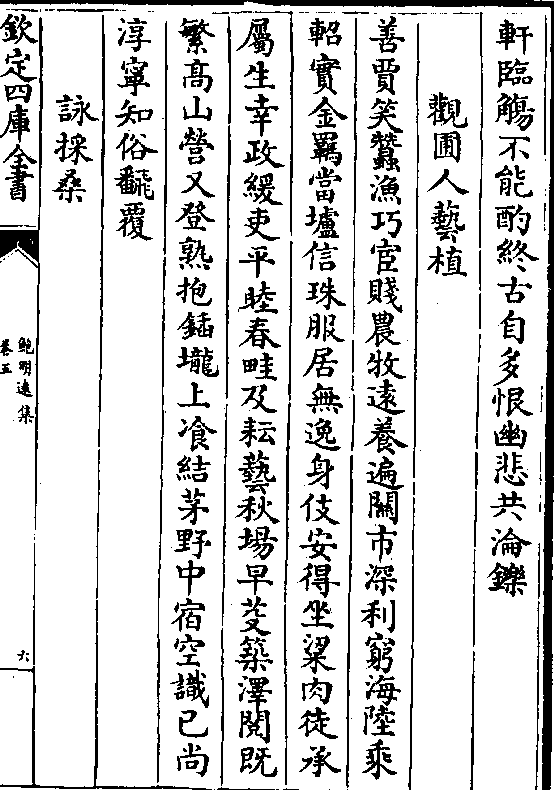 軒臨觴不能酌終古自多恨幽悲共淪鑠
觀圃人藝植
善賈笑蠶漁巧宦賤農牧遠養遍關市深利窮海陸乘
軺實金羈當壚信珠服居無逸身伎安得坐粱肉徒承
屬生幸政緩吏平睦春畦及耘藝秋場早芟築澤閱既
繁高山營又登熟抱鍤壠上飡結茅野中宿空識已尚
淳寧知俗翻覆
詠採桑
欽定四庫全書
鮑明遠集
卷五
六